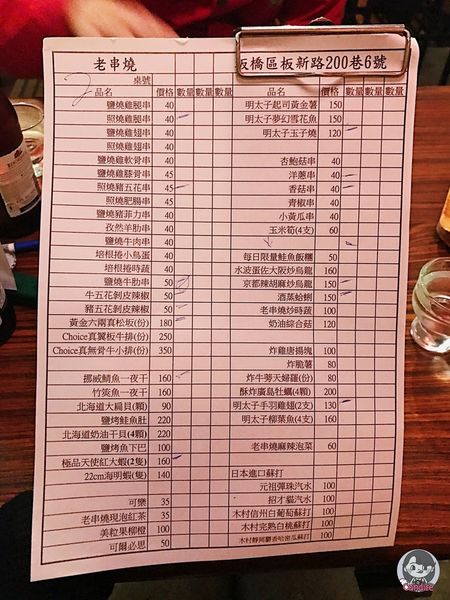 老串燒
板橋區板新路200巷6號
桌號 2
品名 價格 數量 數量 數量
鹽燒雞腿串 40
照燒雞腿串 40
鹽燒雞翅串 40
照燒雞翅串 40
鹽燒雞軟骨串 45
鹽燒雞膝骨串 45
照燒豬五花串 45
照燒肥腸串 45
鹽燒豬菲力串 40
孜然羊肋串 40
鹽燒牛肉串 40
培根捲小鳥蛋 40
培根捲時蔬 40
鹽燒牛肋串 50
牛五花剝皮辣椒 50
豬五花剝皮辣椒 50
黃金六兩真松坂(份) 180
Choice真翼板牛排(份) 250
Choice真無骨牛小排(份) 350
挪威鯖魚一夜干 160
竹筴魚一夜干 160
北海道大扁貝(顆) 90
鹽烤鮭魚肚 220
北海道奶油干貝(4顆) 220
鹽烤魚下巴 100
極品天使紅大蝦(2隻) 160
22cm海明蝦(隻) 140
可樂 35
老串燒現泡紅茶 35
美粒果柳橙 100
可爾必思 50
品名 價格 數量 數量 數量
明太子起司黃金薯 150
明太子夢幻雪花魚 150
明太子玉子燒 120
杏鮑菇串 40
洋蔥串 40
香菇串 40
青椒串 40
小黃瓜串 40
玉米筍(4支) 60
每日限量鮭魚飯糰 50
水波蛋佐大阪炒烏龍 150
京都辣胡麻炒烏龍 150
酒蒸蛤蜊 150
老串燒炒時蔬 100
奶油綜合菇 120
炸雞唐揚塊 100
炸脆薯 80
炸牛蒡天婦羅(份) 80
酥炸廣島牡蠣(4顆) 200
明太子手羽雞翅(2支) 130
明太子柳葉魚(4支) 160
老串燒麻辣泡菜 60
日本進口蘇打
元祖彈珠汽水 100
招才貓汽水 100
木村信州白葡萄蘇打 100
木村完熟白桃蘇打 100
木村靜岡麝香哈密瓜蘇打 100